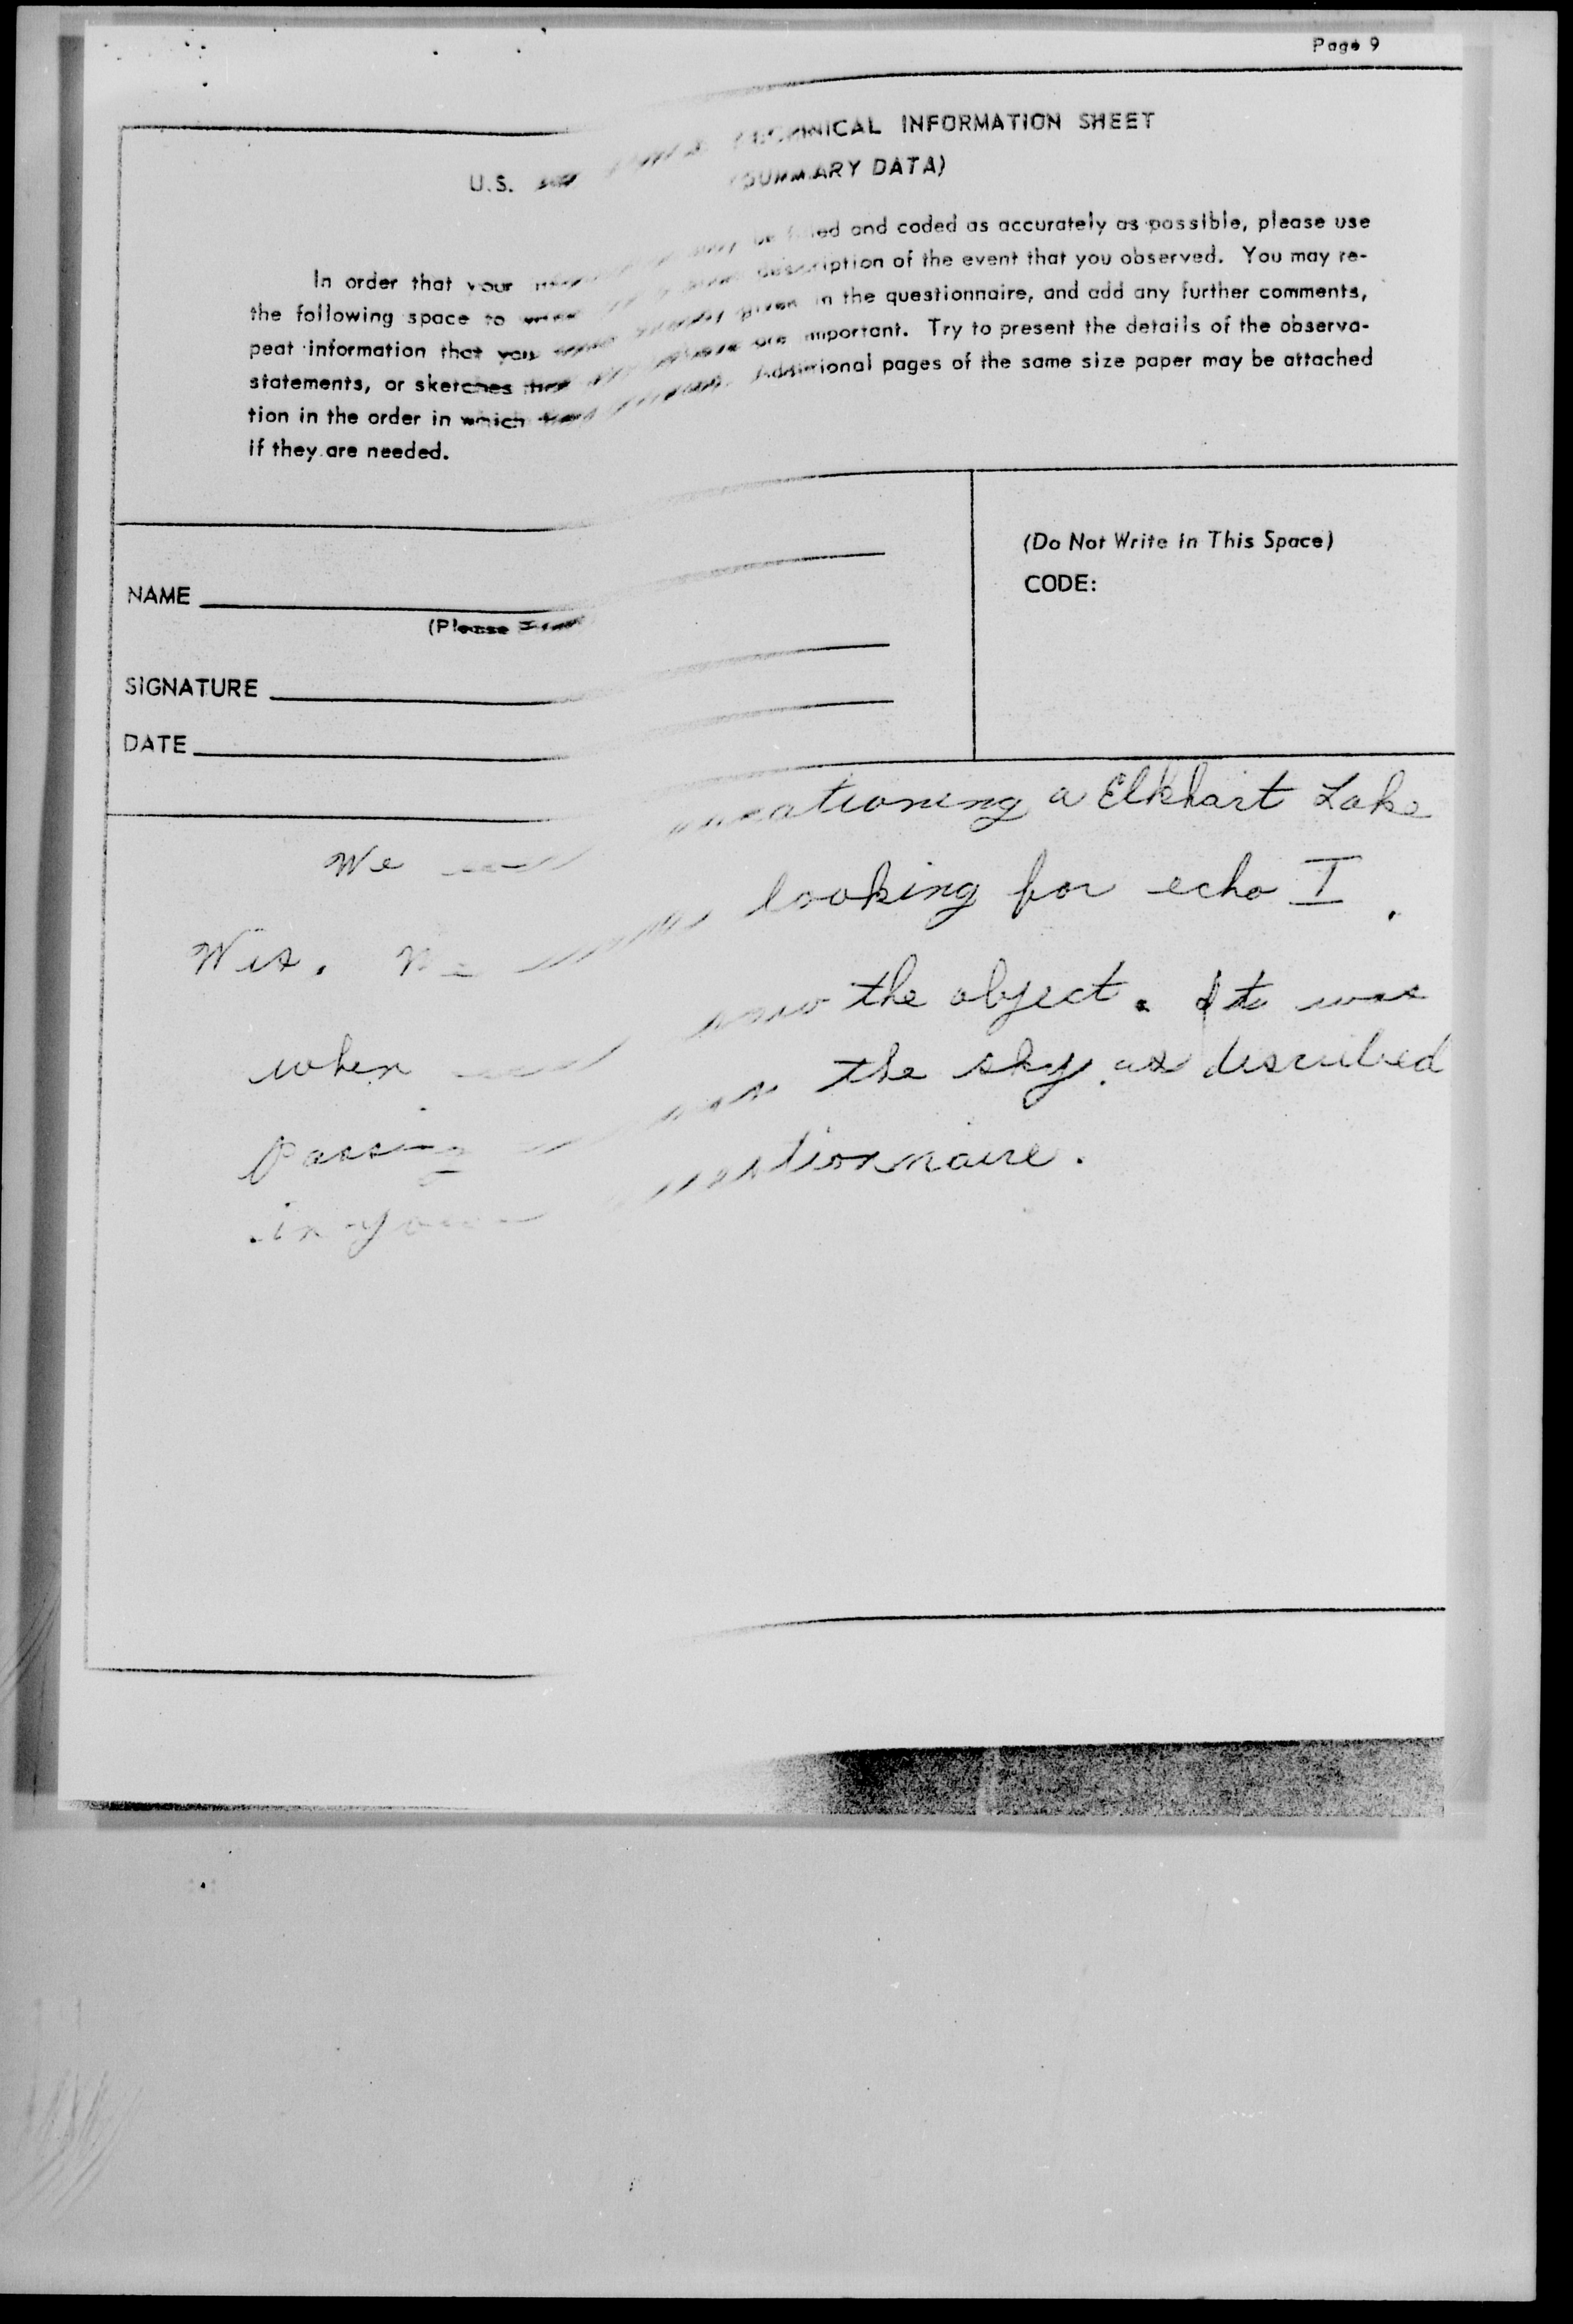 Page 9
U.S. TECHNICAL INFORMATION SHEET
(SUMMARY DATA)
In order that your be filled and coded as accurately as possible, please use
the following space to description of the event that you observed. You may re-
peat information that you given in the questionnaire, and add any further comments,
statements, or sketches that are important. Try to present the details of the observa-
tion in the order in which Additional pages of the same size paper may be attached
if they are needed.
NAME
(Please
SIGNATURE
DATE
(Do Not Write in This Space)
CODE:
We vacationing a Elkhart Lake
Wis. looking for echo I.
when saw the object. It was
Passing the sky as described
in your questionnaire.